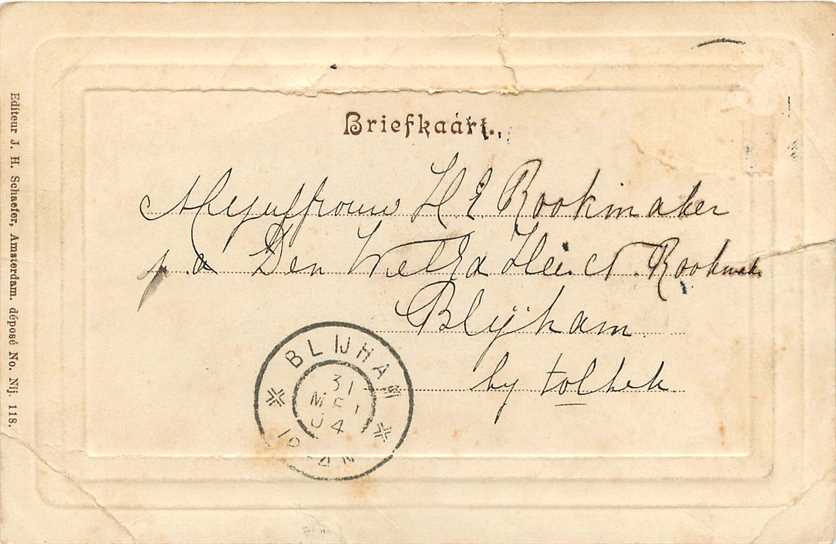 Briefkaart.
Mejuffrouw H E Rookmaker
p. a Den WelEd Heer
Blijham
by tolhek
BLIJHAM
31
MEI
04
10-
AM
Editeur J. H. Schaefer, Amsterdam. déposé No. Nij. 118.